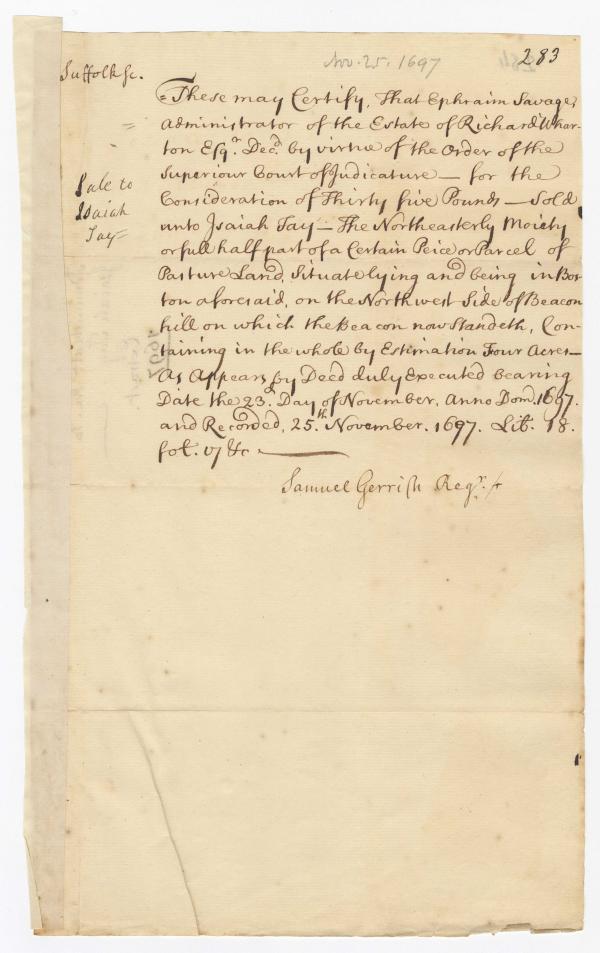 Nov. 25. 1697
283
Suffolk Sc.
These may Certify, That Ephraim Savage,
Administrator of the Estate of Richard Whar-
ton Esqr. Decd. by virtue of the Order of the
Superiour Court of Judicature — for the
Consideration of Thirty five Pounds — Sold
unto Isaiah Tay — The Northeasterly Moiety
or full half part of a Certain Peice or Parcel of
Pasture Land, Situate lying and being in Bos-
ton aforesaid, on the Northwest Side of Beacon
hill on which the Beacon now Standeth, Con-
taining in the whole by Estimation Four Acres —
As Appears by Deed duly Executed bearing
Date the 23d. Day of November, Anno Dom. 1697.
and Recorded, 25th. November. 1697. Lib. 18.
fol. 17 &c
Samuel Gerrish Regr.
Sale to
Isaiah
Tay